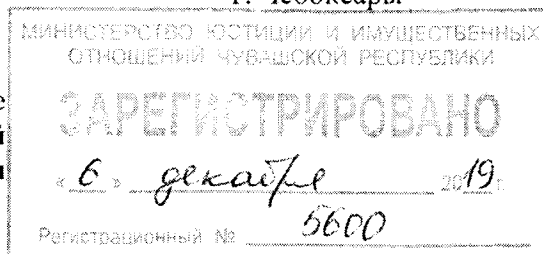 г. Чебоксары
МИНИСТЕРСТВО ЮСТИЦИИ И ИМУЩЕСТВЕННЫХ
ОТНОШЕНИЙ ЧУВАШСКОЙ РЕСПУБЛИКИ
е
й
и
ЗАРЕГИСТРИРОВАНО
« 6 » декабря 2019 г.
Регистрационный № 5600